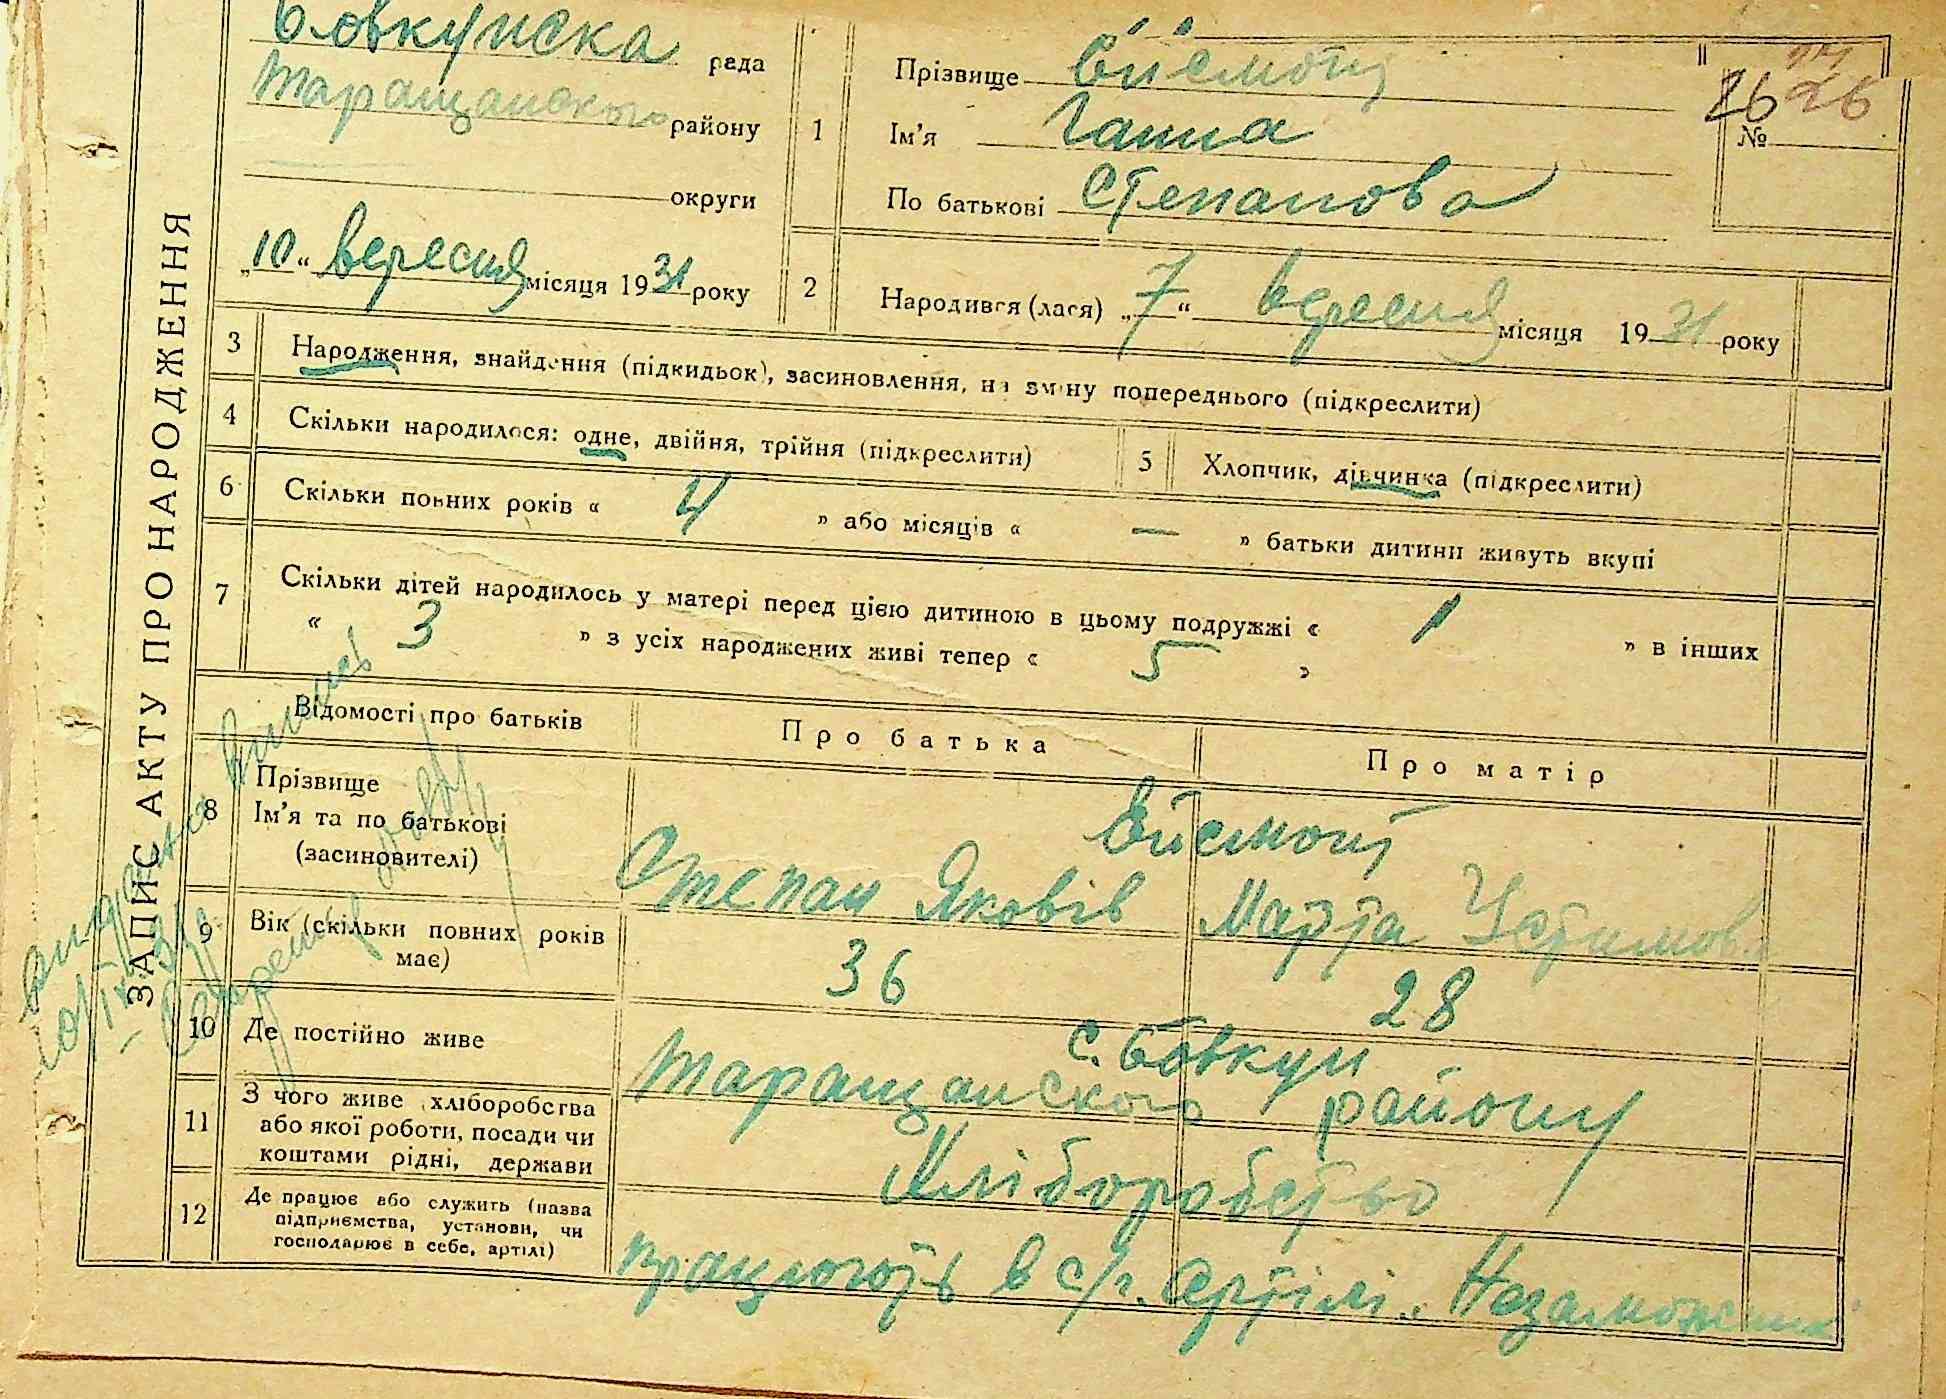 ЗАПИС АКТУ ПРО НАРОДЖЕННЯ
Бовкунска рада
Таращанского району
округи
„10“ вересня місяця 1931 року
1
Прізвище
Ім'я Ганна
По батькові Степанова
26 26
№
2
Народився (лася) „7“ вересня місяця 1931 року
3 Народження, знайдення (підкидьок), засиновлення, на зміну попереднього (підкреслити)
4 Скільки народилося: одне, двійня, трійня (підкреслити)
5 Хлопчик, дівчинка (підкреслити)
6 Скільки повних років « 4 » або місяців « — » батьки дитини живуть вкупі
7 Скільки дітей народилось у матері перед цією дитиною в цьому подружжі « 1 » в інших
« 3 » з усіх народжених живі тепер « 5 »
Відомості про батьків
Про батька
Про матір
8 Прізвище
Ім'я та по батькові
(засиновителі)
Степан Яковів Марта Устимова
9 Вік (скільки повних років
має)
36 28
10 Де постійно живе
с. Бовкун
Таращанского району
11 З чого живе хліборобства
або якої роботи, посади чи
коштами рідні, держави
Хліборобство
12 Де працює або служить (назва
підприємства, установи, чи
господарює в себе, артілі)
працюють в с/г. артілі „Незаможник